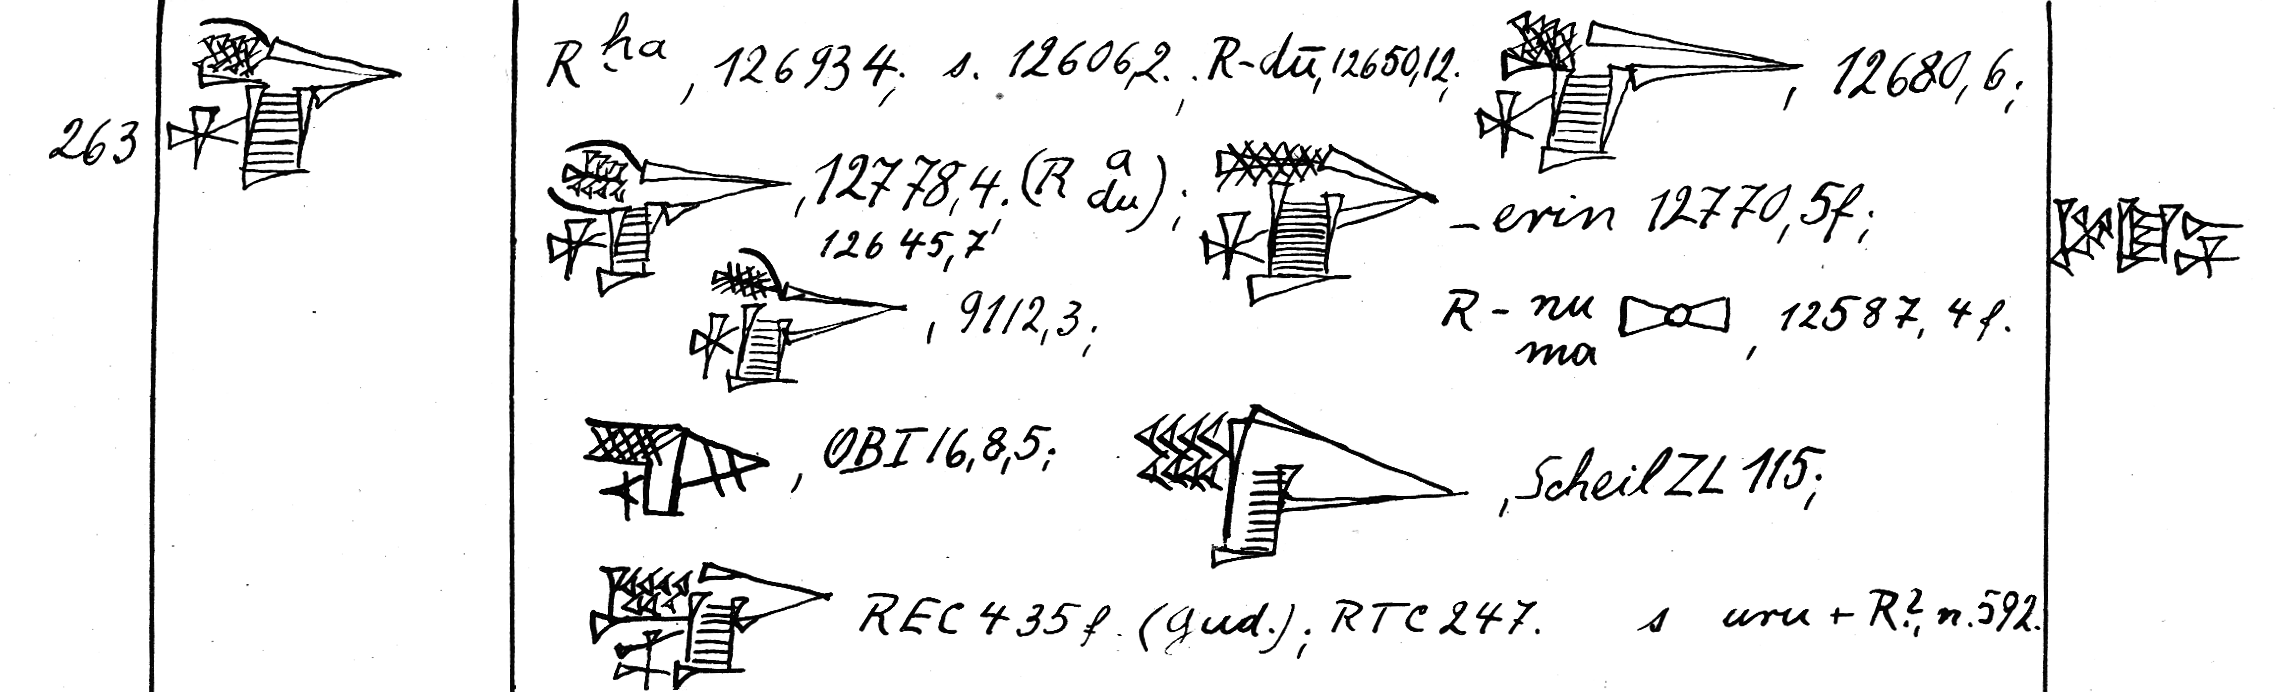 263
R ḫa, 126934; s. 12606,2. ; R-dū, 12650,12; , 12680,6;
, 12778,4. (R a du); -erin 12770,5f;
12645,7'
, 9112,3; R - nu ma , 12587,4f.
, OBI 16,8,5; , Scheil ZL 115;
REC 435f. (Gud.); RTC 247. s uru + R?, n. 592.